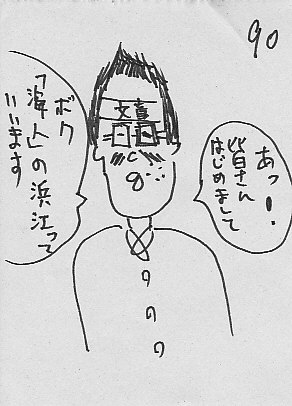 90
あっ!
皆さん
はじめまして
ボク
の浜江って
いいます